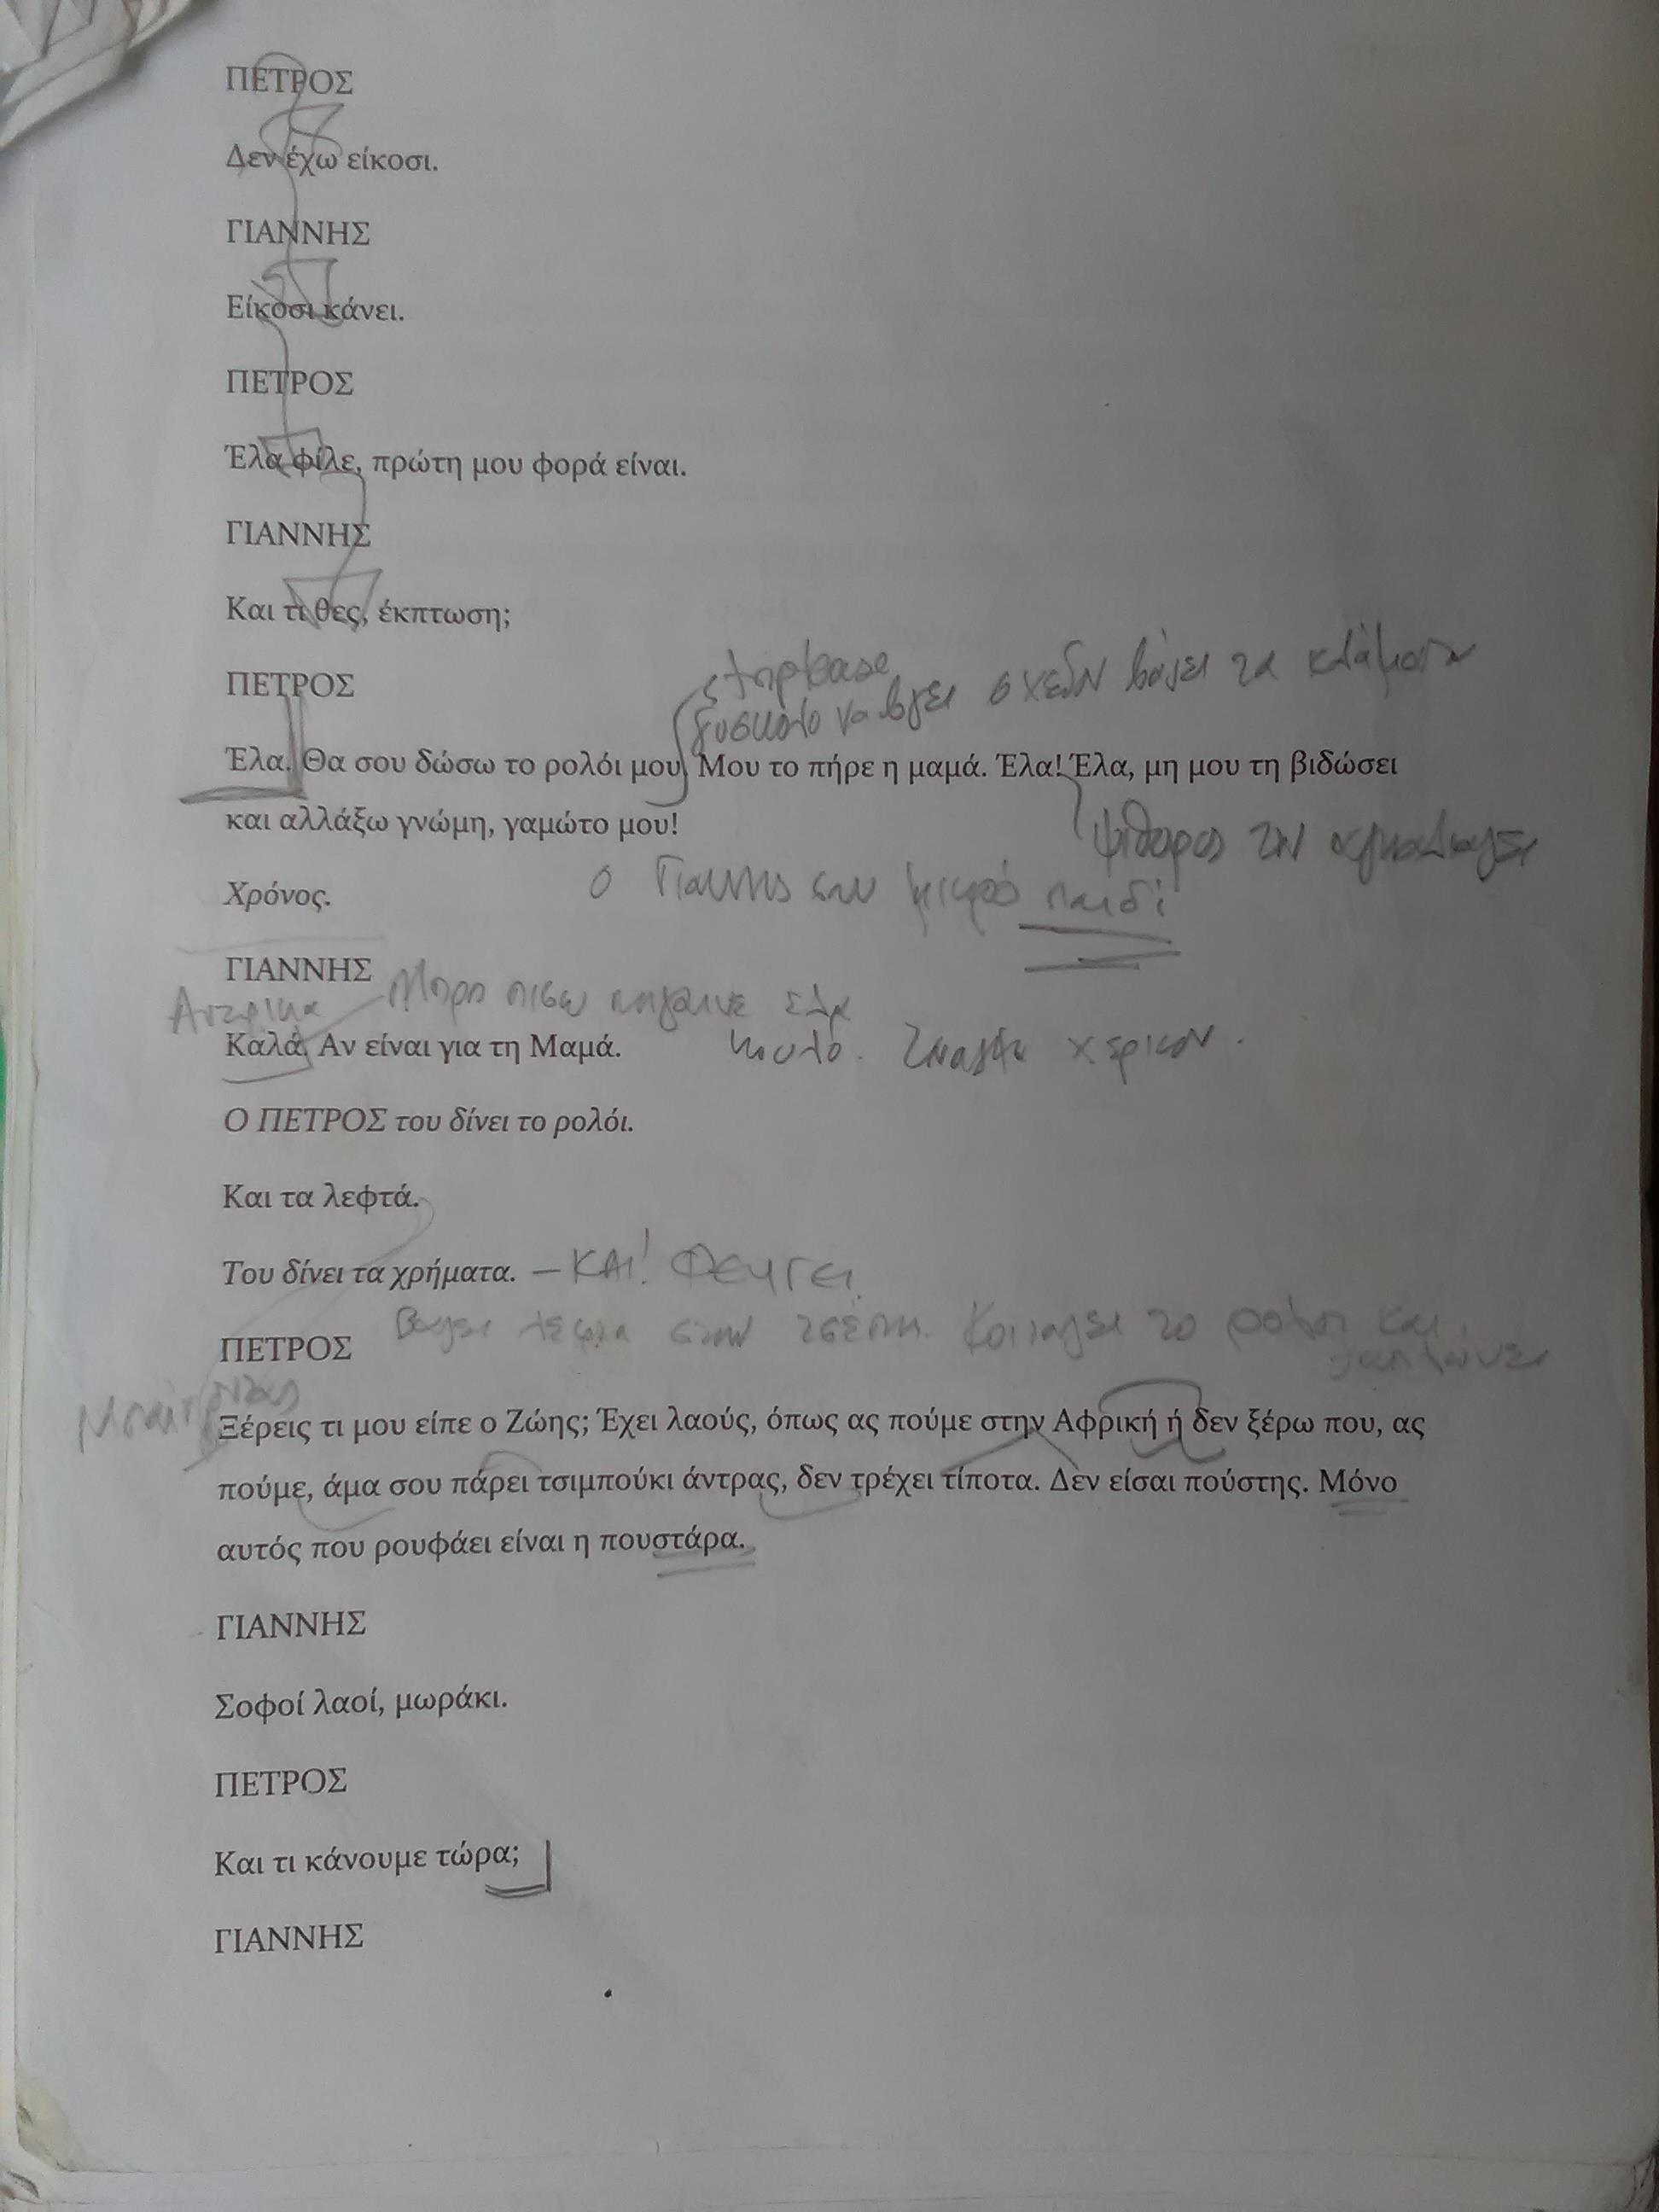 ΠΕΤΡΟΣ
Δεν έχω είκοσι.
ΓΙΑΝΝΗΣ
Είκοσι κάνει.
ΠΕΤΡΟΣ
Έλα φίλε, πρώτη μου φορά είναι.
ΓΙΑΝΝΗΣ
Και τι θες, έκπτωση;
δύσκολο να βγει σχεδόν βάζει τα κλάματα
ΠΕΤΡΟΣ
Έλα. Θα σου δώσω το ρολόι μου. Μου το πήρε η μαμά. Έλα! Έλα, μη μου τη βιδώσει
και αλλάξω γνώμη, γαμώτο μου!
Ψίθυρος την αγκαλιάζει
Χρόνος.
Ο Γιάννης σαν μικρό παιδί
ΓΙΑΝΝΗΣ
πίσω πήγαινε έλα
Καλά. Αν είναι για τη Μαμά.
Ο ΠΕΤΡΟΣ του δίνει το ρολόι.
Και τα λεφτά.
Του δίνει τα χρήματα. – ΚΑΙ! ΦΕΥΓΕΙ
ΠΕΤΡΟΣ
Βάζει λεφτά στην τσέπη. Κοιτάζει το ρολόι και
Ξέρεις τι μου είπε ο Ζώης; Έχει λαούς, όπως ας πούμε στην Αφρική ή δεν ξέρω που, ας
πούμε, άμα σου πάρει τσιμπούκι άντρας, δεν τρέχει τίποτα. Δεν είσαι πούστης. Μόνο
αυτός που ρουφάει είναι η πουστάρα.
ΓΙΑΝΝΗΣ
Σοφοί λαοί, μωράκι.
ΠΕΤΡΟΣ
Και τι κάνουμε τώρα;
ΓΙΑΝΝΗΣ